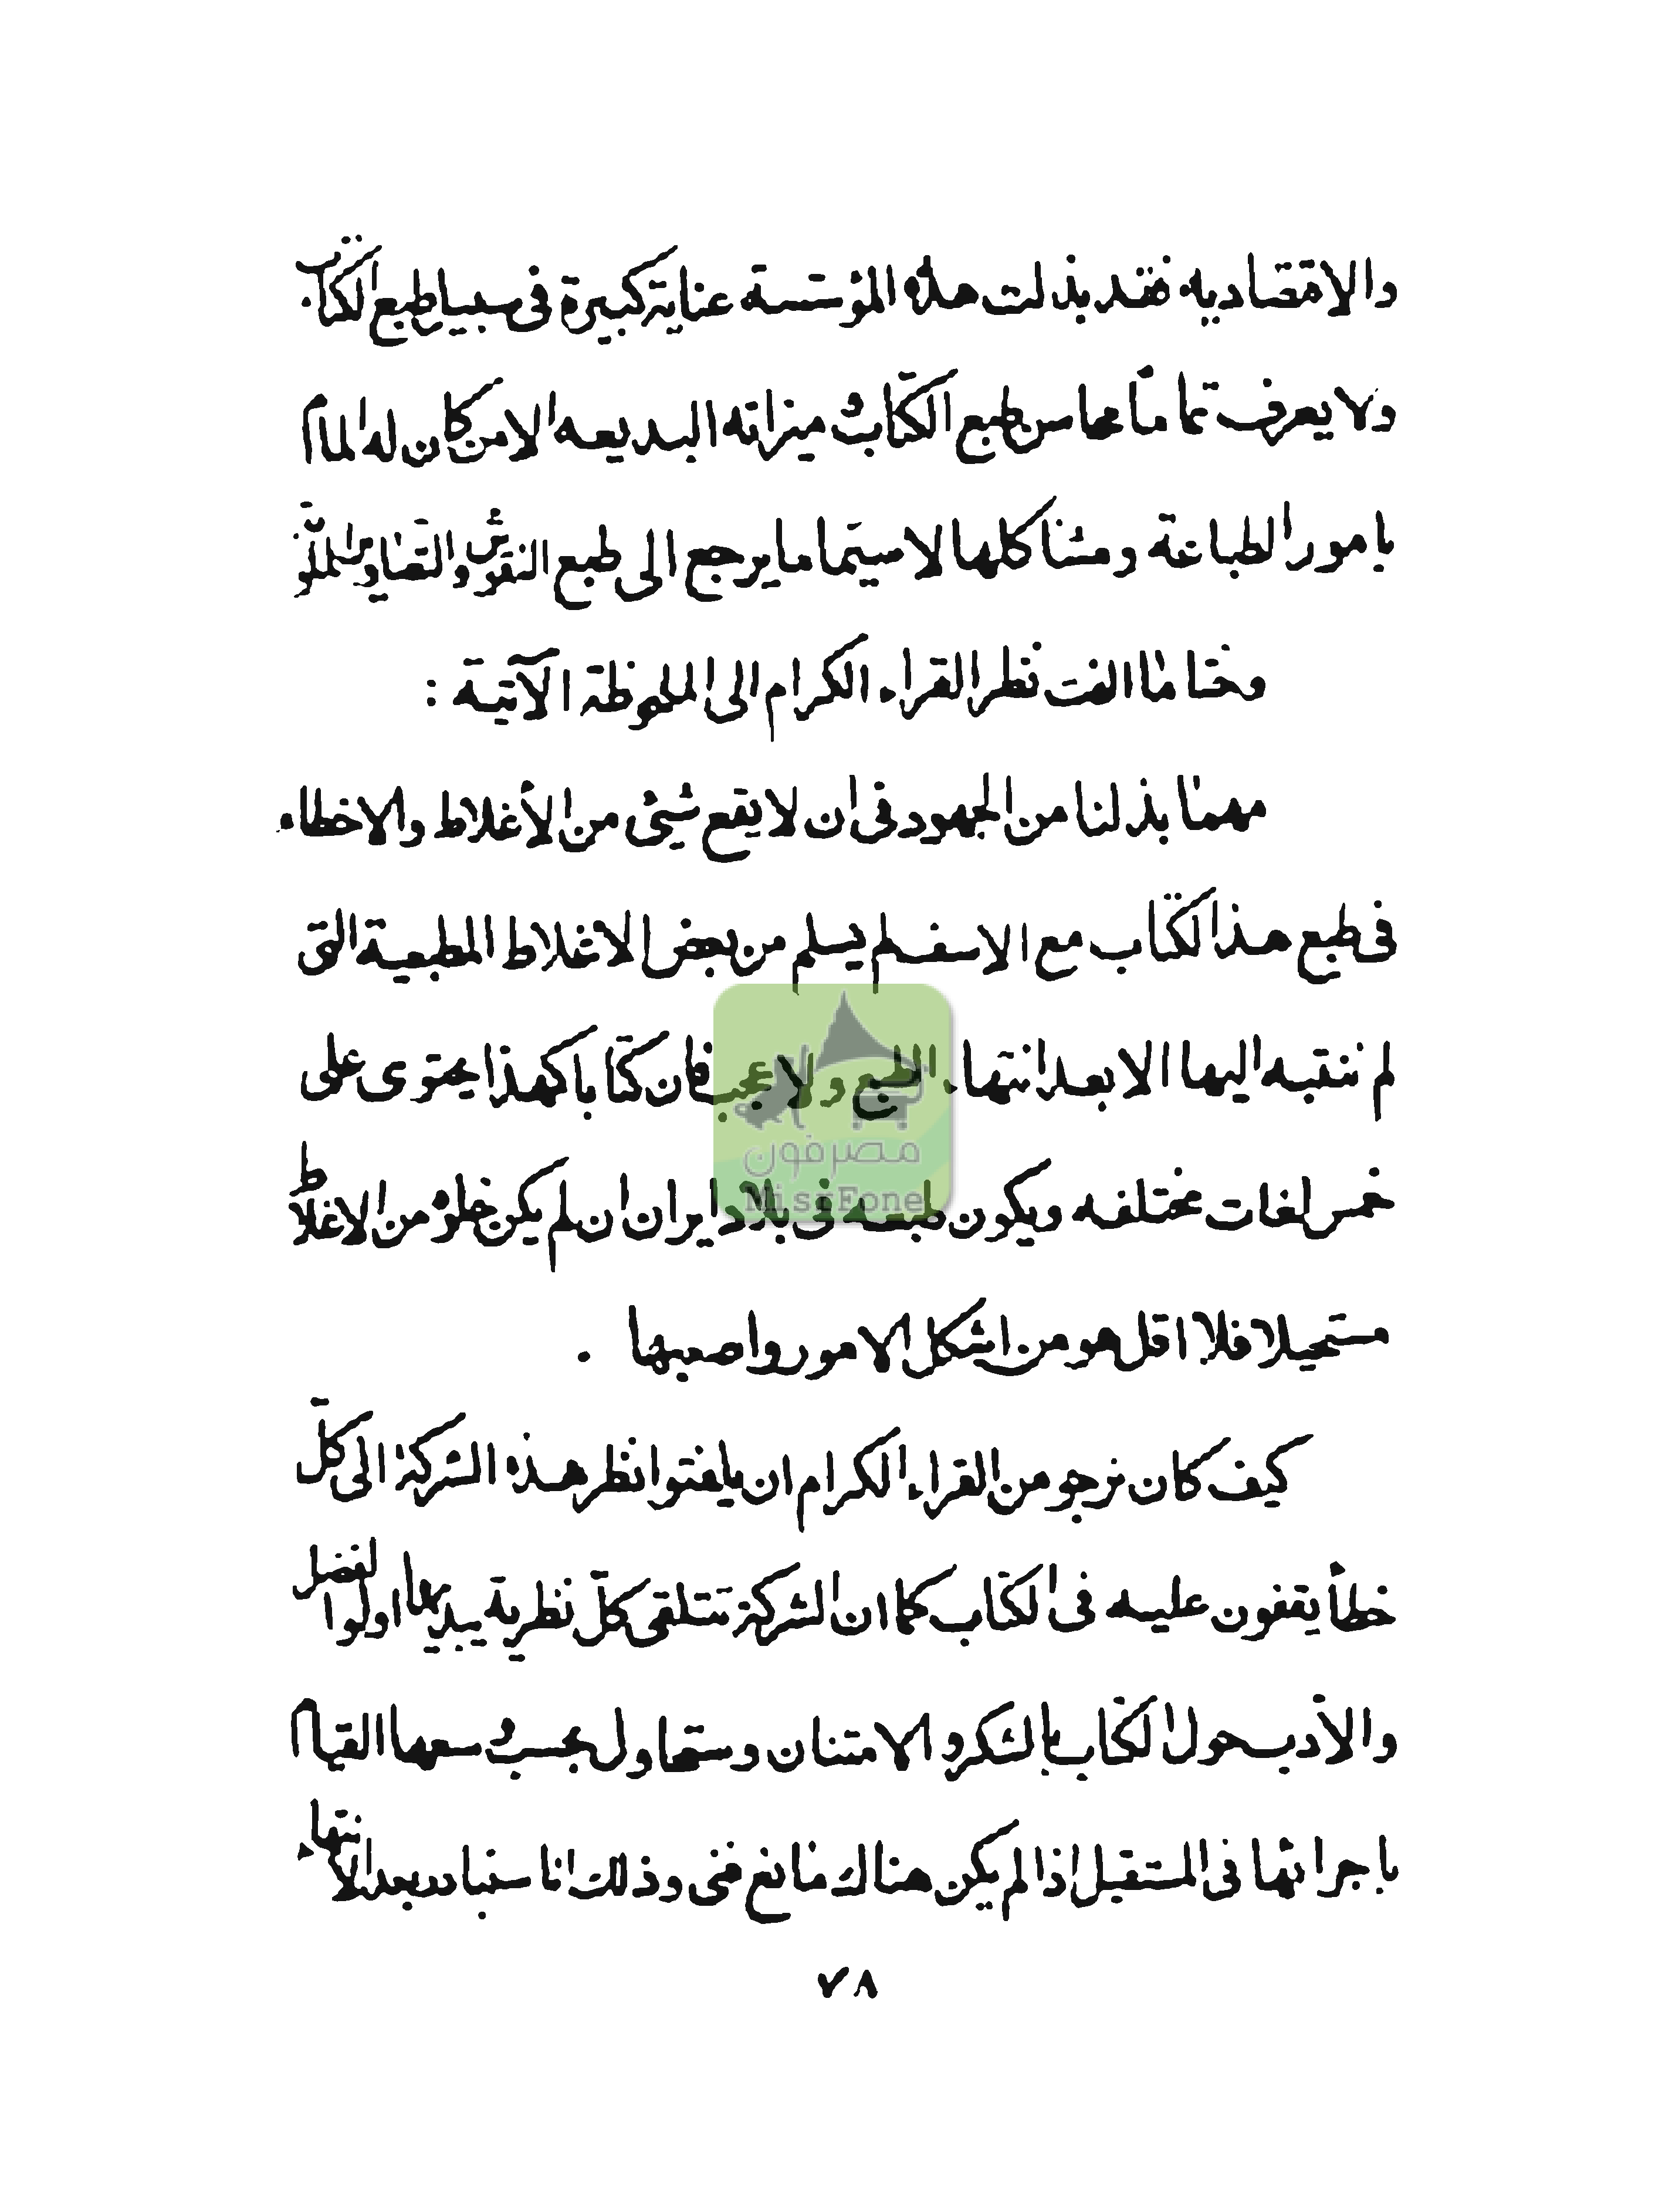 والاقتصاديه فقد بذلت هذه المؤسسة عناية كبيرة فى سبيل طبع الكتاب
ولا يعرف تماماً محاسن طبع الكتاب وميزاته البديعه الا من كان له المام
بامور الطباعة ومشاكلها لا سيّما ما يرجع الى طبع النقوش والتصاوير الملوّنة
وختاماً الفت نظر القراء الكرام الى الملحوظة الآتية :
مهما بذلنا من الجهود فى ان لا يقع شيئ من الأغلاط والاخطاء
فى طبع هذا الكتاب مع الاسف لم يسلم من بعض الاغلاط المطبعية التى
لم ننتبه اليها الا بعد انتهاء الطبع ولا عجب فان كتابا كهذا يحتوى على
خمس لغات مختلفه ويكون طبعه فى بلاد ايران ان لم يكن خلوّه من الاغلاط
مستحيلا فلا اقل هو من اشكل الامور واصعبها .
كيف كان نرجو من القراء الكرام ان يلفتوا نظر هذه الشركة الى كلّ
خطأ يقفون عليه فى الكتاب كما ان الشركة تتلقى كلّ نظرية يبديها اولوا الفضل
والأدب حول الكتاب بالشكر والامتنان وستحاول بحسب وسعها القيام
باجرائها فى المستقبل اذا لم يكن هناك مانع فنى وذلك انا سنبادر بعد الانتهاء
٧٨
مصرفون
MisrFone